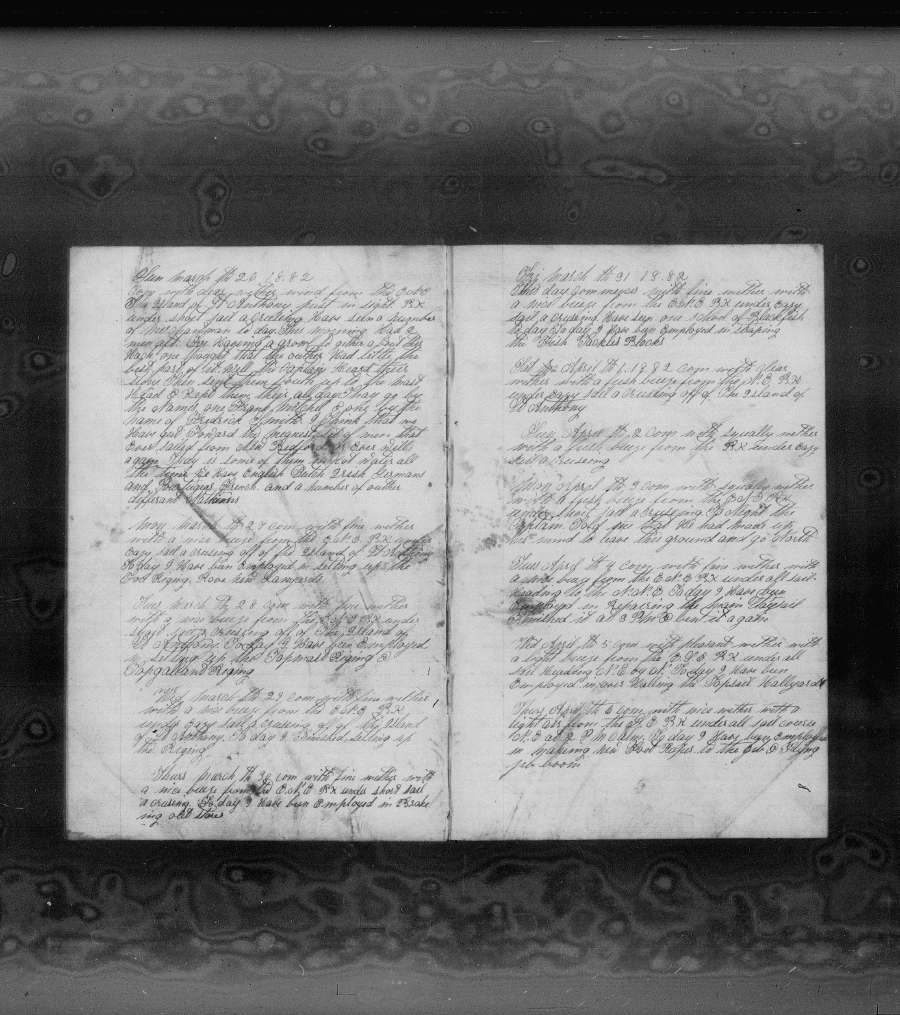 Sun March th 26 1882
Com with clear wether wind from the E.N.E
The island of St Anthony just in sight RX
under short sail a cruising Have seen a number
of merchantman to day This morning had 2
men
Each one thought that the outher Had little the
best part of it. Well the captain Heard their
then sent them both up to the mast
Head & Kept them their all day Thay go by
the Names one Frank Mitchel & one by the
name of Fredrick Smith. I think that we
Have got Onboard the of men that
Ever sailed from New Bedford or Ever will
again Thay is some of them most all
the we Have English Dutch Irish Germans
and Portugues French. and a number of outher
different Nathions
Mon March th 27 com with fine wether
with a nice breeze from the E.N.E RX under
Eazy sail a cruising off of the Island of St Anthony
To day I Have bin Employed in setting up the
Fore Riging Rove new Lanyards
Tues March th 28 com with fine wether
with a nice breeze from the E RX under
short sail a cruising off of The Island of
St Anthony. To day I Have bin Employed
in setting up the Topmast Riging &
Topgalland Riging
Wed March th 29 com with fine wether
with a nice breeze from the E.N.E RX
under Eazy sail a cruising off of the Island
of St Anthony. To day I Finished setting up
the Riging
Thurs March th 30 com with fine wether with
a nice breeze from the E.N.E RX under short sail
a cruising To day I Have been Employed in Brake
ing old stores
Fri March th 31 1882
This day commences with fine wether with
a nice breeze from the E.N.E RX under Eazy
sail a cruising Have seen one school of Blackfish
to day To day I Have bin Employed in straping
the Fish Tackles Blocks
Sat April th 1. 1882 com with clear
wether with a fresh breeze from the N.E RX
under Eazy sail a cruising off of The Island of
St Anthony
Sun April th 2 com with squally wether
with a fresh breeze from the RX under Eazy
sail a cruising
Mon April th 3 com with squally wether
with a fresh breeze from the E.N.E RX
under short sail a cruising To Night the
Captain Told me that He had made up
his mind to leave this ground and go North
Tues April th 4 com with fine wether with
a nice breeze from the E.N.E RX under all sail
heading to the N.N.E To day I Have been
Employed in Repairing the main Staysail
Finished it at 3 P.M & bent it again
Wed April th 5 com with pleasant wether with
a light breeze from the E.S.E RX under all
sail Heading N.E by N. To day I Have been
Employed in over Halling the Topsail Hallyards
Thurs April th 6 com with nice wether with a
light air from the S.E RX under all sail course
N.E at 2 P.M Calm. To day I Have been Employed
in making new Foot Ropes to the Jib & Flying
jib boom